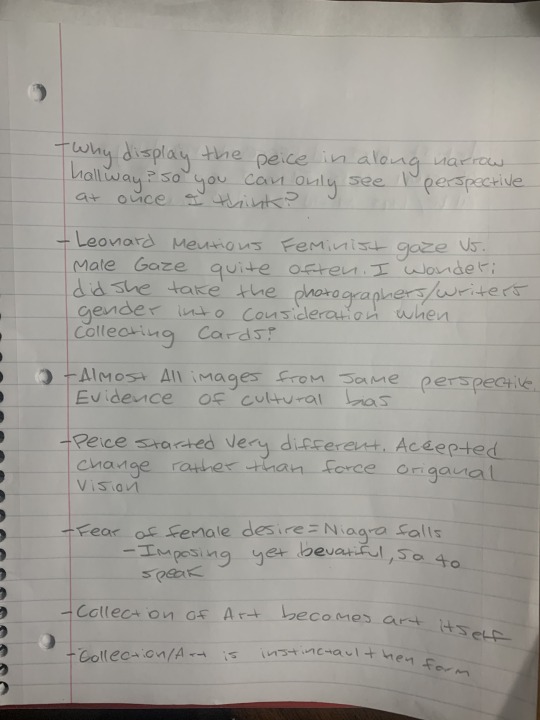 -Why display the peice in along narrow
hallway? so you can only see 1 perspective
at once I think?
- Leonard Mentions Feminist gaze Vs.
Male Gaze quite often. I wonder:
did she take the photographers/writers
gender into consideration when
collecting Cards?
-Almost All images from same perspective.
Evidence of cultural bias
-Peice started Very different. Accepted
change rather than force origanal
Vision
-Fear of female desire = Niagra falls
-Imposing yet beuatiful, so to
speak
-Collection of Art becomes art itself
-Collection/Art is instinctaul then form